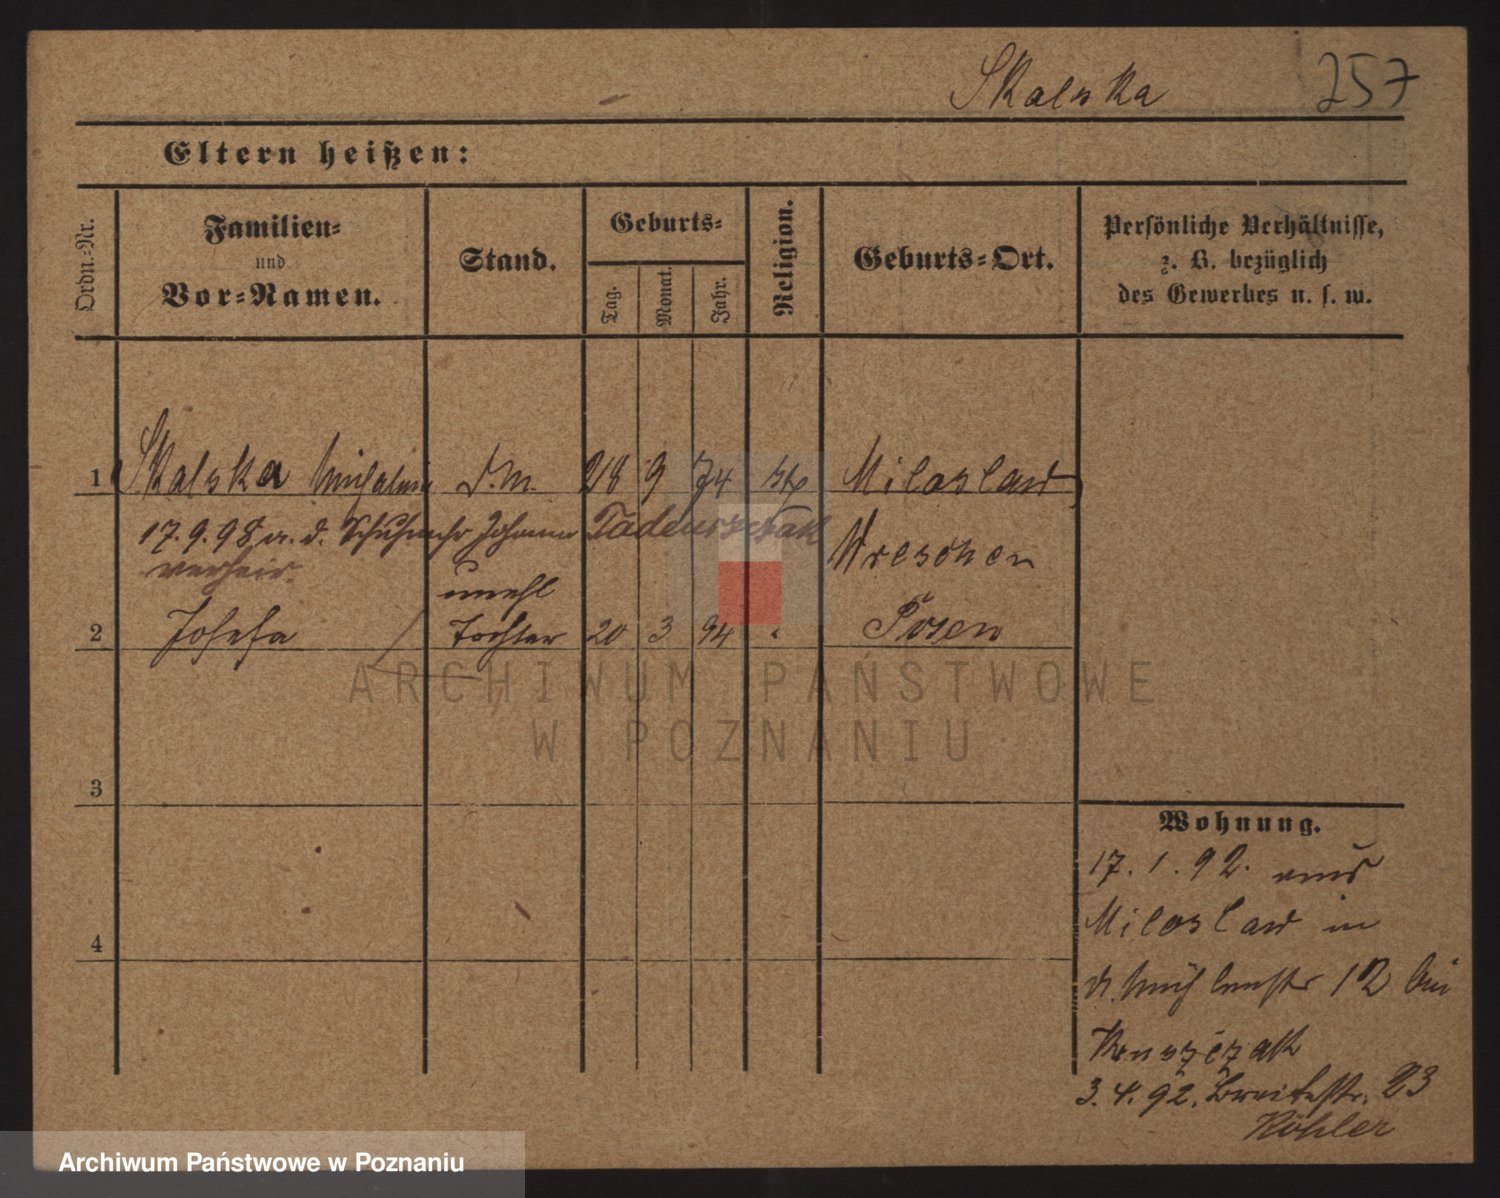 Skalska 257
Eltern heißen:
Ordn.-Nr.
Familien-
und
Vor-Namen.
Stand.
Geburts-
Tag.
Monat.
Jahr.
Religion.
Geburts-Ort.
Persönliche Verhältnisse,
z. B. bezüglich
des Gewerbes u. s. w.
1 Skalska D.M. 9 74 Miloslaw
17.9.98 a. d. Schuhm Johann Tadeuszczak Wreschen
verheir.
unehl
2 Josefa Tochter 20 3 94 Posen
ARCHIWUM PAŃSTWOWE
W POZNANIU
3
4
Wohnung.
17.1.92. aus
Miloslaw in
12 bei
3.4.92. Breitestr. 23
Köhler
Archiwum Państwowe w Poznaniu